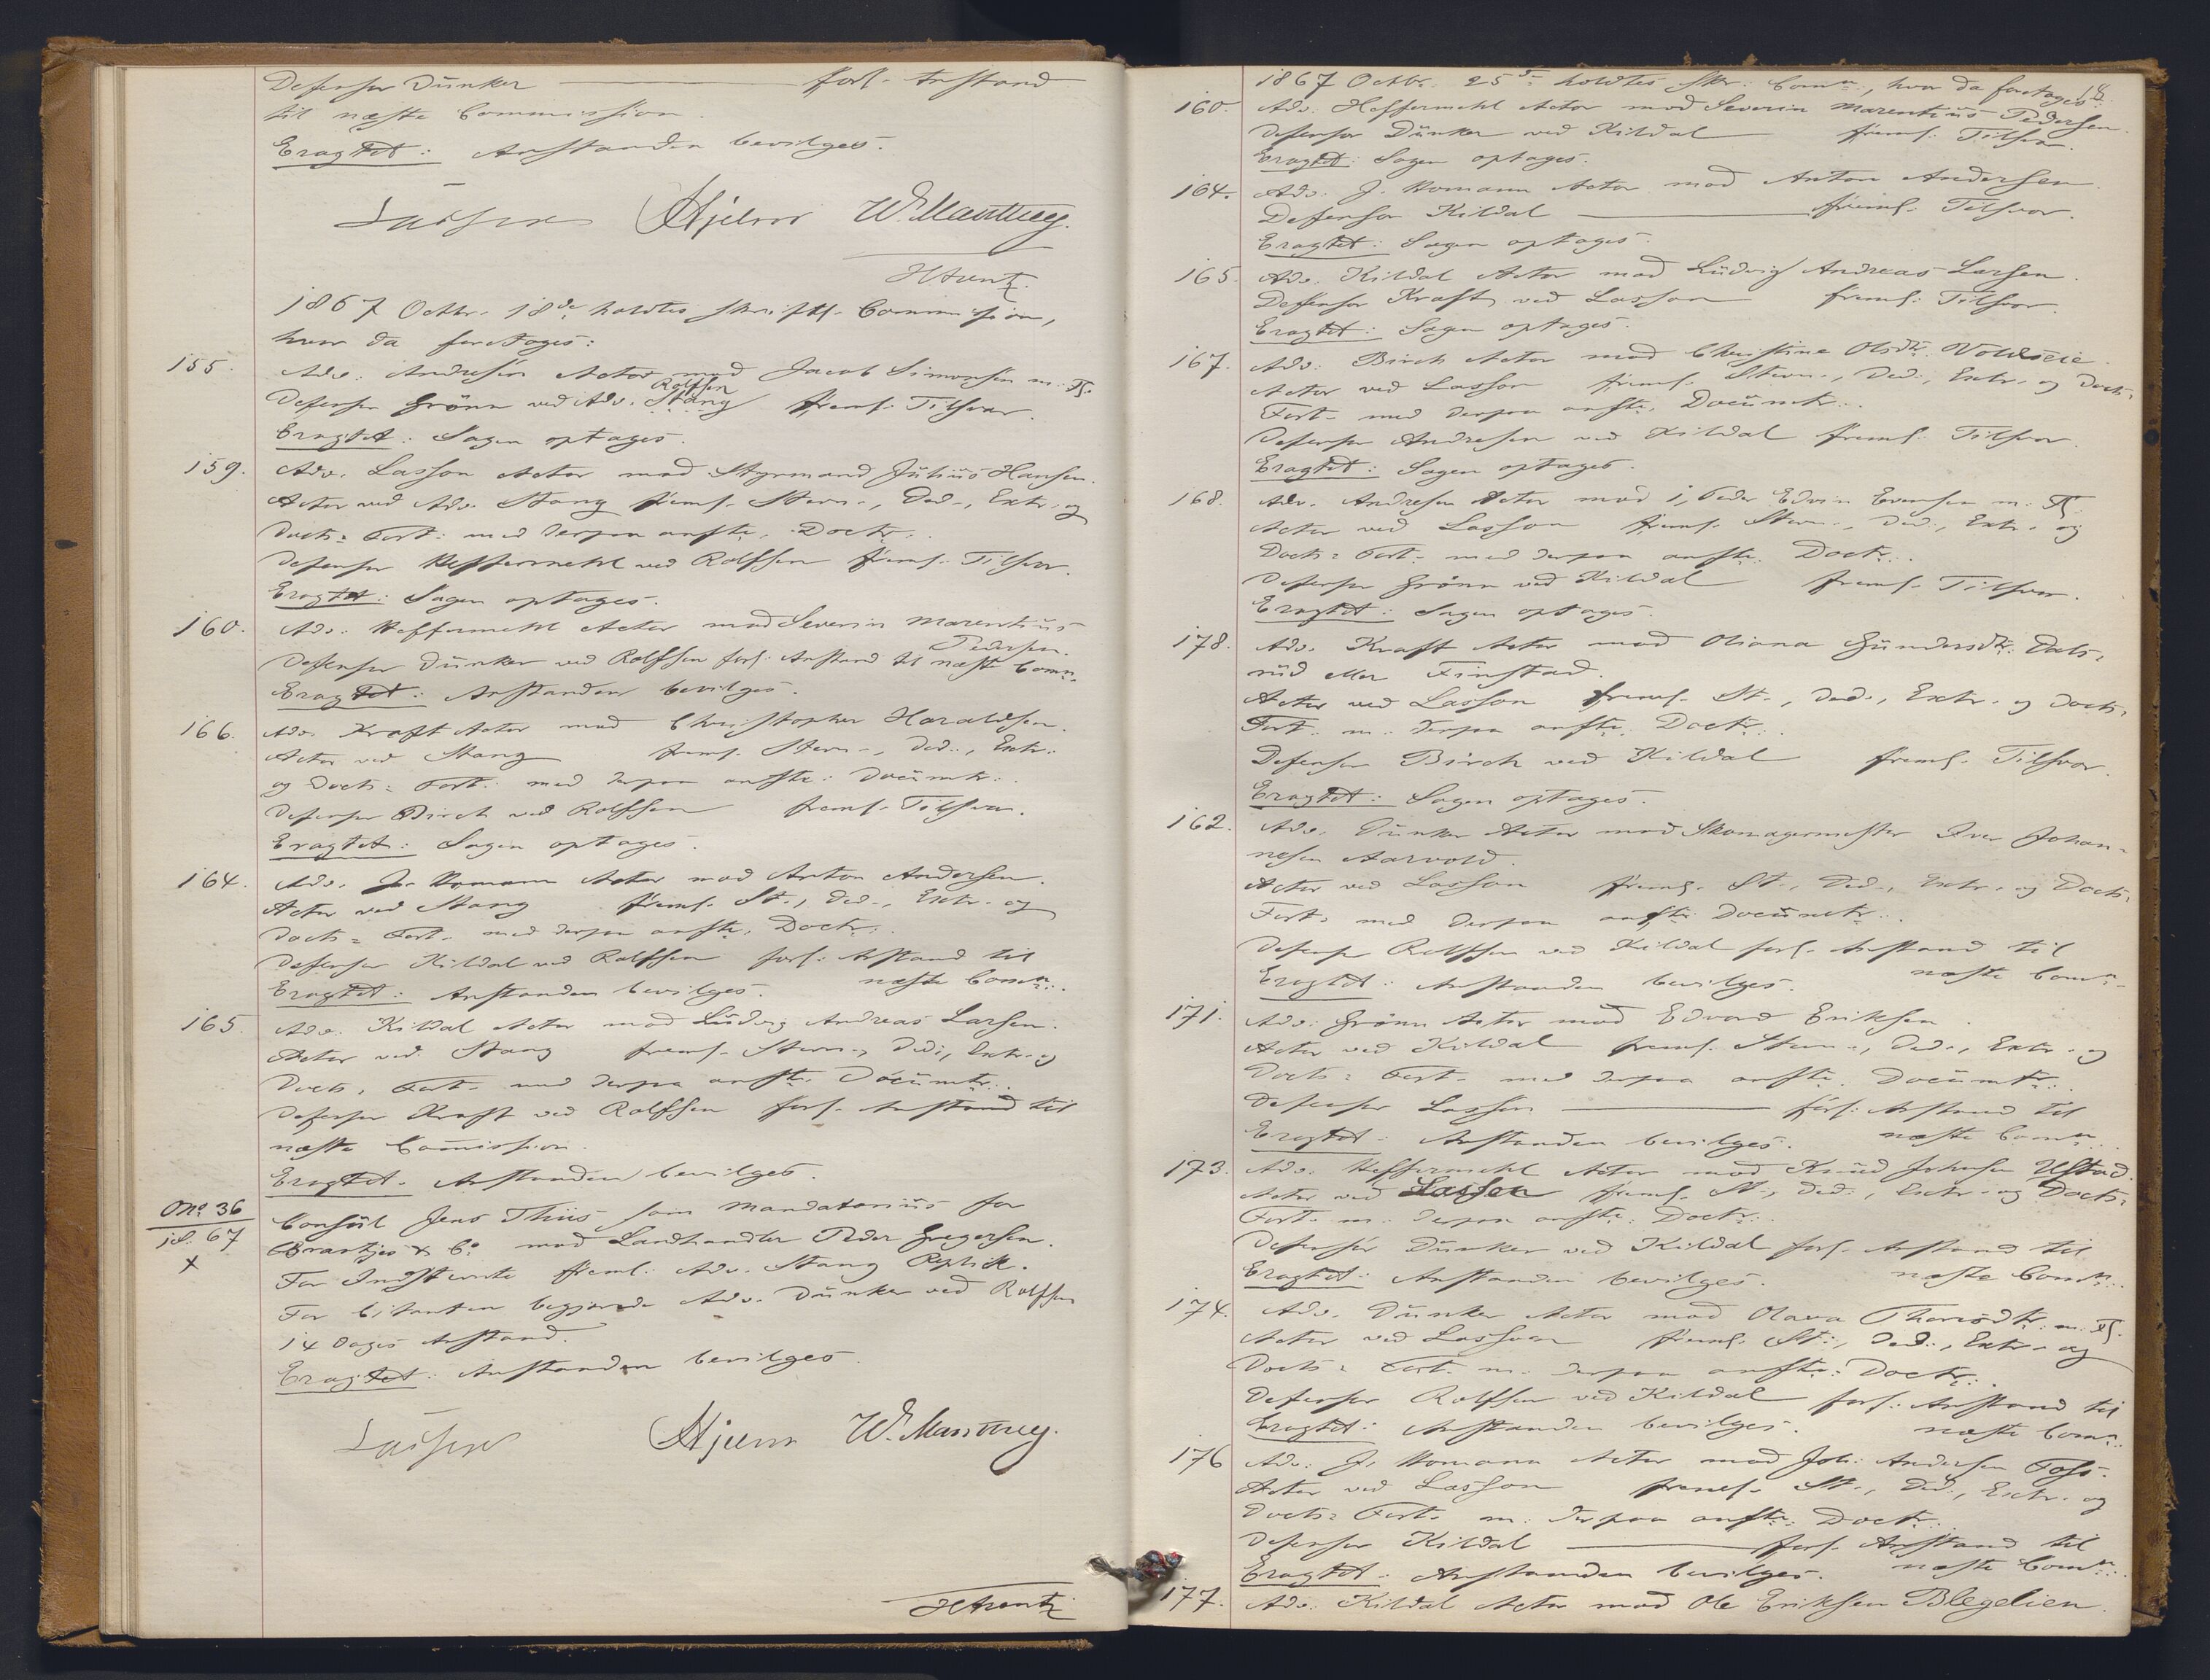 Defensor Dünker ——— forl. Anstand
til næste Commission.
Eragtet: Anstanden bevilges.
Lasson Hjelm W. Manthey.
H Arentz.
1867 Octbr. 18de holdtes skriftl. Commission,
hvor da foretoges:
155. Adv. Andresen Actor mod Jacob Simonsen m. Fl.
Defensor Grönn ved Adv. Stang Rolfsen freml. Tilsvar.
Eragtet: Sagen optages.
159. Adv. Lasson Actor mod Styrmand Julius Hansen.
Actor ved Adv. Stang freml. Stevn., Ded., Extr. og
Docts: Fort: med derpaa anfte. Doctr.
Defensor Heffermehl ved Rolfsen freml. Tilsvar.
Eragtet: Sagen optages.
160. Adv. Heffermehl Actor mod Severin Marentius
Pedersen.
Defensor Dünker ved Rolfsen forl. Anstand til næste Comn.
Eragtet: Anstanden bevilges.
166. Adv. Kraft Actor mod Christopher Haraldsen.
Actor ved Stang freml. Stevn., Ded., Extr.
og Docts: Fort. med derpaa anfte: Documtr.
Defensor Birch ved Rolfsen freml. Tilsvar.
Eragtet: Sagen optages.
164. Adv. J. Homann Actor mod Anton Andersen.
Actor ved Stang freml. St., Ded., Extr. og
Docts: Fort. med derpaa anfte. Doctr.
Defensor Kildal ved Rolfsen forl. Anstand til
næste Comn.
Eragtet: Anstanden bevilges.
165. Adv. Kildal Actor mod Ludvig Andreas Larsen.
Actor ved Stang freml. Stevn., Ded., Extr. og
Docts. Fort. med derpaa anfte. Documtr.
Defensor Kraft ved Rolfsen forl. Anstand til
næste Commission.
Eragtet. Anstanden bevilges.
No 36
if. 67
x
Consul Jens Thiis som Mandatarius for
& Co mod Landhandler Peder Gregersen.
For Indstevnte freml. Adv. Stang Replik.
For Citanten begjærede Adv. Dünker ved Rolfsen
14 Dages Anstand.
Eragtet: Anstanden bevilges.
Lasson Hjelm W. Manthey.
H Arentz
18.
1867 Octbr. 25de holdtes skr. Comn., hvor da foretoges:
160. Adv. Heffermehl Actor mod Severin Marentius Pedersen.
Defensor Dünker ved Kildal freml. Tilsvar.
Eragtet: Sagen optages.
164. Adv. J. Homann Actor mod Anton Andersen.
Defensor Kildal ——— freml. Tilsvar.
Eragtet: Sagen optages.
165. Adv. Kildal Actor mod Ludvig Andreas Larsen.
Defensor Kraft ved Lasson freml. Tilsvar.
Eragtet: Sagen optages.
167. Adv. Birch Actor mod Christine Olsdtr.
Actor ved Lasson freml. Stevn., Ded., Extr. og Docts:
Fort. med derpaa anfte. Documtr.
Defensor Andresen ved Kildal freml. Tilsvar.
Eragtet: Sagen optages.
168. Adv. Andresen Actor mod 1, Peder Edvin Evensen m. Fl.
Actor ved Lasson freml. Stevn., Ded., Extr. og
Docts: Fort. med derpaa anfte. Doctr.
Defensor Grönn ved Kildal freml. Tilsvar.
Eragtet: Sagen optages.
178. Adv. Kraft Actor mod Oliana Gundersdtr. Dals-
rud eller Finstad.
Actor ved Lasson freml. St., Ded., Extr. og Docts:
Fort. m. derpaa anfte. Doctr.
Defensor Birch ved Kildal freml. Tilsvar.
Eragtet: Sagen optages.
162. Adv. Dünker Actor mod Skomagermester Iver Johan-
nesen Aarvold.
Actor ved Lasson freml. St., Ded., Extr. og Docts:
Fort. med derpaa anfte Documtr.
Defensor Rolfsen ved Kildal forl. Anstand til
næste Comn.
Eragtet: Anstanden bevilges.
171. Adv. Grönn Actor mod Edvard Eriksen.
Actor ved Kildal freml. Stevn., Ded., Extr. og
Docts: Fort. med derpaa anfte. Documtr.
Defensor Lasson ——— forl. Anstand til
næste Comn.
Eragtet: Anstanden bevilges.
173. Adv. Heffermehl Actor mod Knud Johnsen Ustad.
Actor ved Lasson freml. St., Ded., Extr. og Docts:
Fort. m. derpaa anfte: Doctr.
Defensor Dünker ved Kildal forl. Anstand til
næste Comn.
Eragtet: Anstanden bevilges.
174. Adv. Dünker Actor mod Olava Thorsdtr. m. Fl.
Actor ved Lasson freml. St., Ded., Extr. og
Docts: Fort. m. derpaa anfte: Doctr.
Defensor Rolfsen ved Kildal forl. Anstand til
næste Comn.
Eragtet: Anstanden bevilges.
176 Adv. J. Homann Actor mod Joh. Andersen Foss.
Actor ved Lasson freml. St., Ded., Extr. og
Docts: Fort. m. derpaa anfte: Doctr.
Defensor Kildal ——— forl. Anstand til
næste Comn.
Eragtet: Anstanden bevilges.
177. Adv. Kildal Actor mod Ole Eriksen Blegelien.